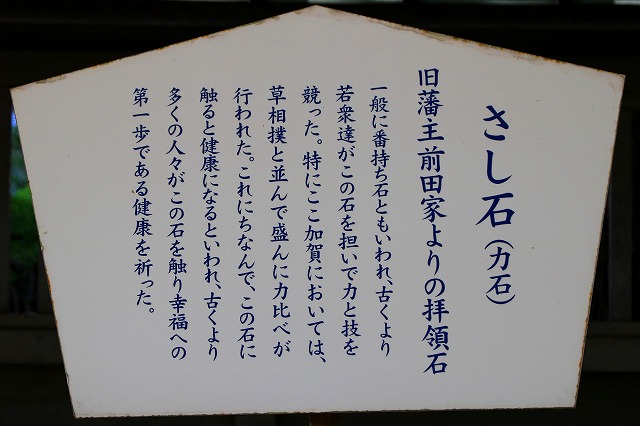 さし石(力石)
旧藩主前田家よりの拝領石
一般に番持ち石ともいわれ、古くより
若衆達がこの石を担いで力と技を
競った。特にここ加賀においては、
草相撲と並んで盛んに力比べが
行われた。これにちなんで、この石に
触ると健康になるといわれ、古くより
多くの人々がこの石を触り幸福への
第一歩である健康を祈った。